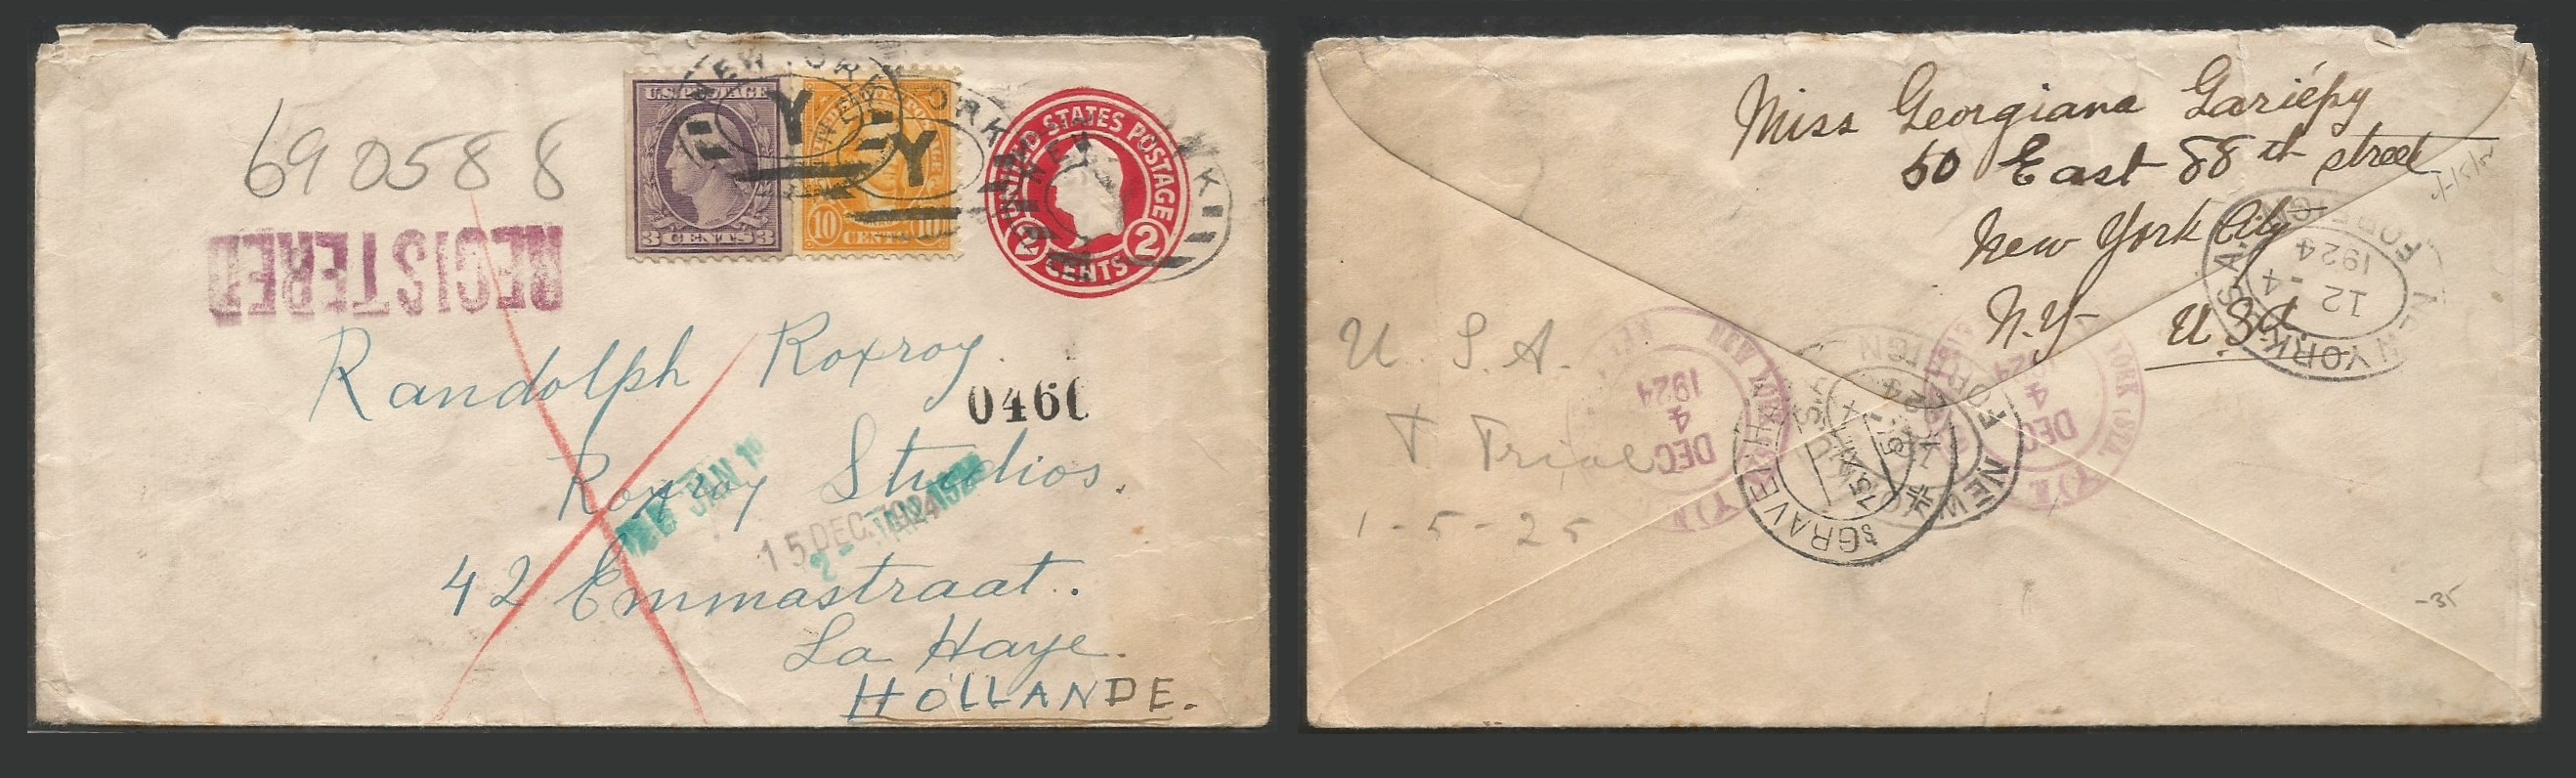 690588
REGISTERED
NEW YORK
Y
Y
U.S. POSTAGE
3 CENTS 3
10 CENTS 10
UNITED STATES POSTAGE
2 CENTS 2
Randolph Roxroy.
0460
Roxroy Studios.
15 DEC. 1924
42 Emmastraat.
La Haye.
HOLLANDE.
Miss Georgiana Gariépy
50 East 88th street
New York City
N.Y. U.S.A.
NEW YORK U.S.A. FOREIGN
12-4
1924
U. S. A.
T Trial
1-5-25
NEW YORK
DEC
4
1924
DEC
4
1924
NEW YORK
FOREIGN
'SGRAVENHAGE
-35